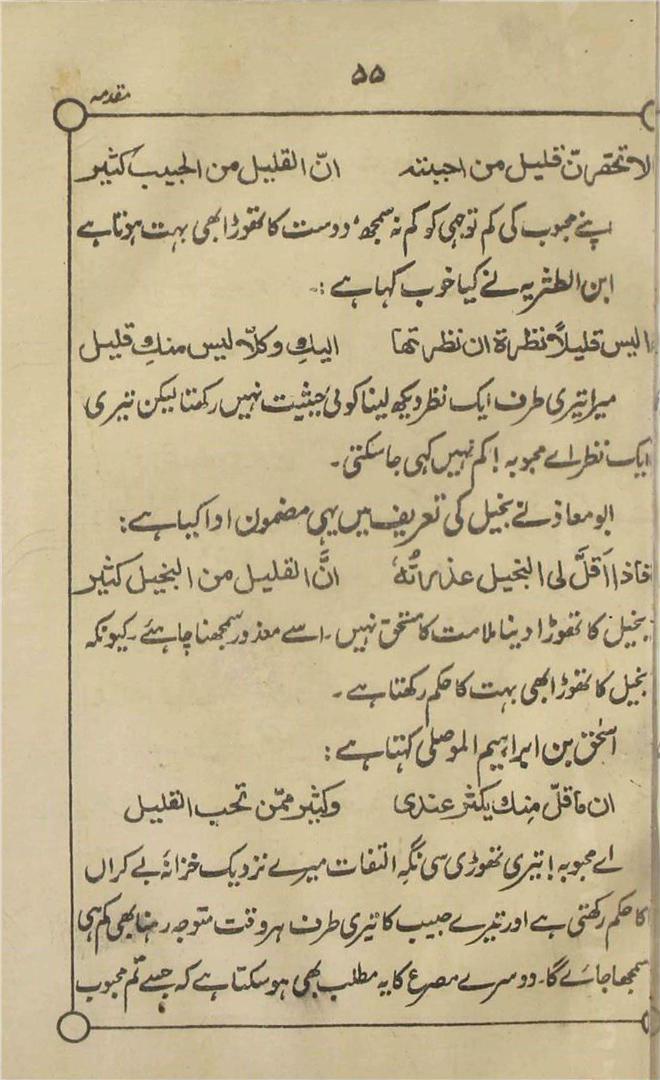 ۵۵
مقدمہ
لا تحقرنّ قلیل من احببتہ انّ القلیل من الحبیب کثیر
اپنے محبوب کی کم توجہی کو کم نہ سمجھ، دوست کا تھوڑا بھی بہت ہوتا ہے
ابن الطثریہ نے کیا خوب کہا ہے :-
الیس قلیلاً نظرۃ ان نظرتھا الیكِ وکلّا لیس منكِ قلیل
میرا تیری طرف ایک نظر دیکھ لینا کوئی حیثیت نہیں رکھتا لیکن تیری
ایک نظر اے محبوبہ! کم نہیں کہی جاسکتی ۔
ابو معاذ نے بخیل کی تعریف میں یہی مضمون ادا کیا ہے :
فاذا اَقلَّ لی البخیل عذرتُہٗ انَّ القلیل من البخیل کثیر
بخیل کا تھوڑا دینا ملامت کا مستحق نہیں ۔ اسے معذور سمجھنا چاہئے ۔ کیونکہ
بخیل کا تھوڑا بھی بہت کا حکم رکھتا ہے ۔
اسحٰق بن ابراہیم الموصلی کہتا ہے :
ان ما قلّ مِنك یکثر عندی وکثیر ممّن تحب القلیل
اے محبوبہ! تیری تھوڑی سی نگہِ التفات میرے نزدیک خزانۂ بے کراں
کا حکم رکھتی ہے اور تیرے حبیب کا تیری طرف ہر وقت متوجہ رہنا بھی کم ہی
سمجھا جائے گا ۔ دوسرے مصرع کا یہ مطلب بھی ہو سکتا ہے کہ جسے تم محبوب